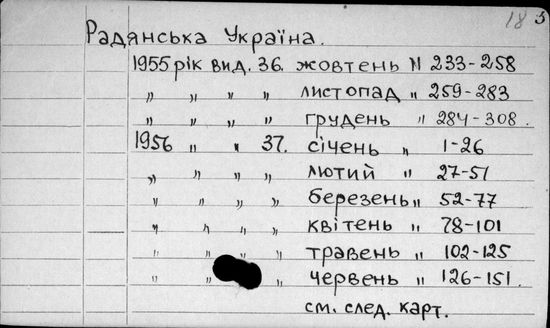 18 3
Радянська Україна.
1955 рік вид. 36. жовтень N 233-258
" " " " листопад " 259-283
" " " " грудень " 284-308.
1956 " " 37. січень " 1-26
" " " " лютий " 27-51
" " " " березень " 52-77
" " " " квітень " 78-101
" " " травень " 102-125
" " " червень " 126-151.
см. след. карт.